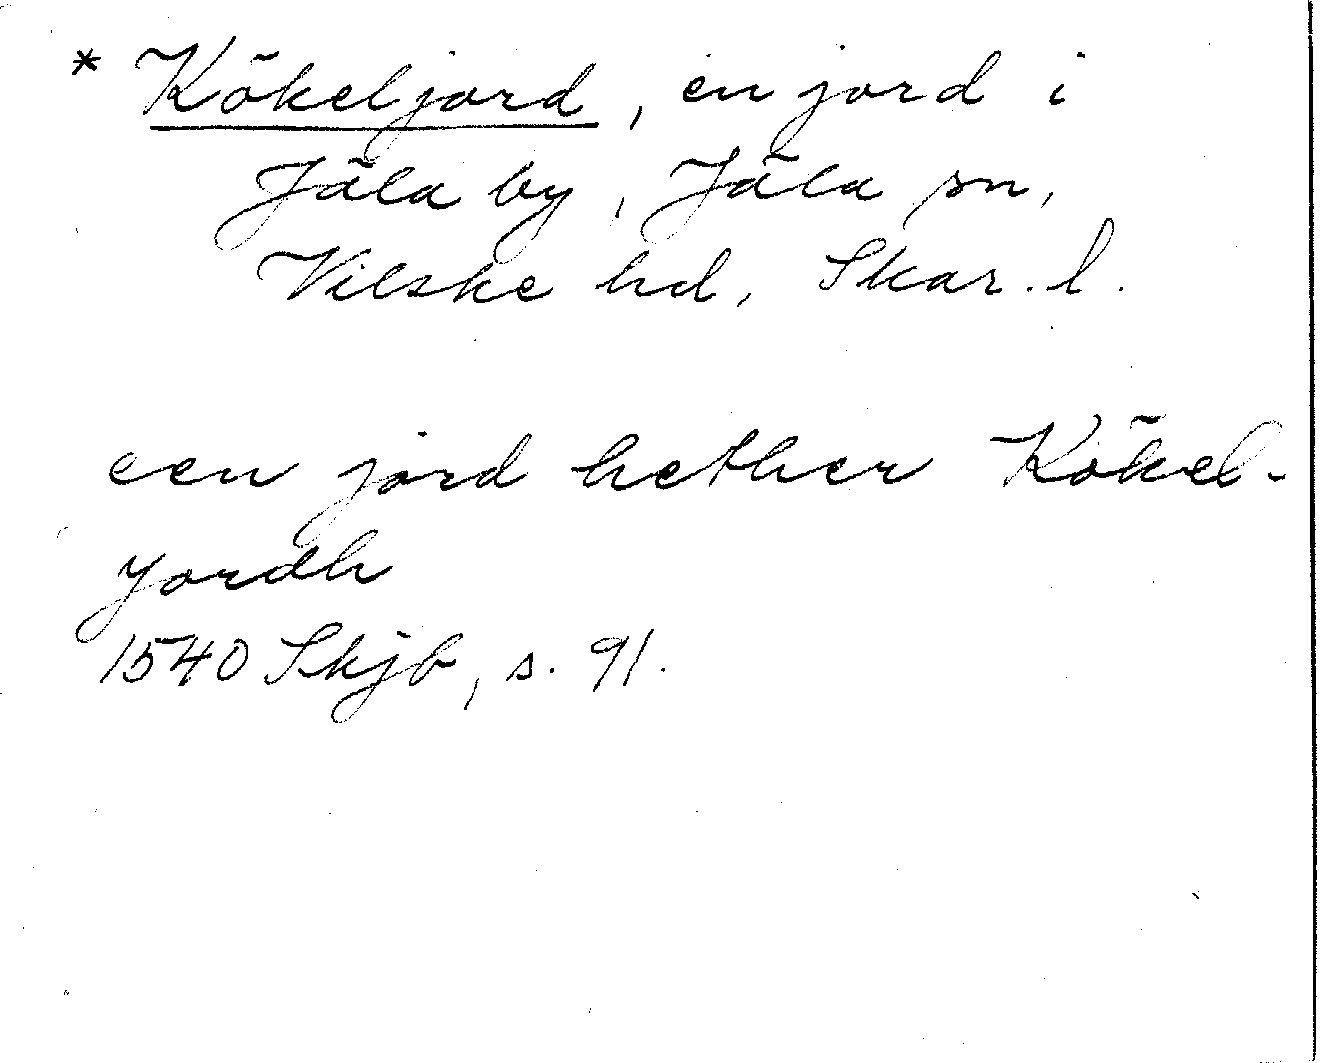 * Kökeljord, en jord i
Jäla by, Jäla sn,
Vilske hd, Skar. l.
een jord hether Kökel-
yordh
1540 Skjb, s. 91.